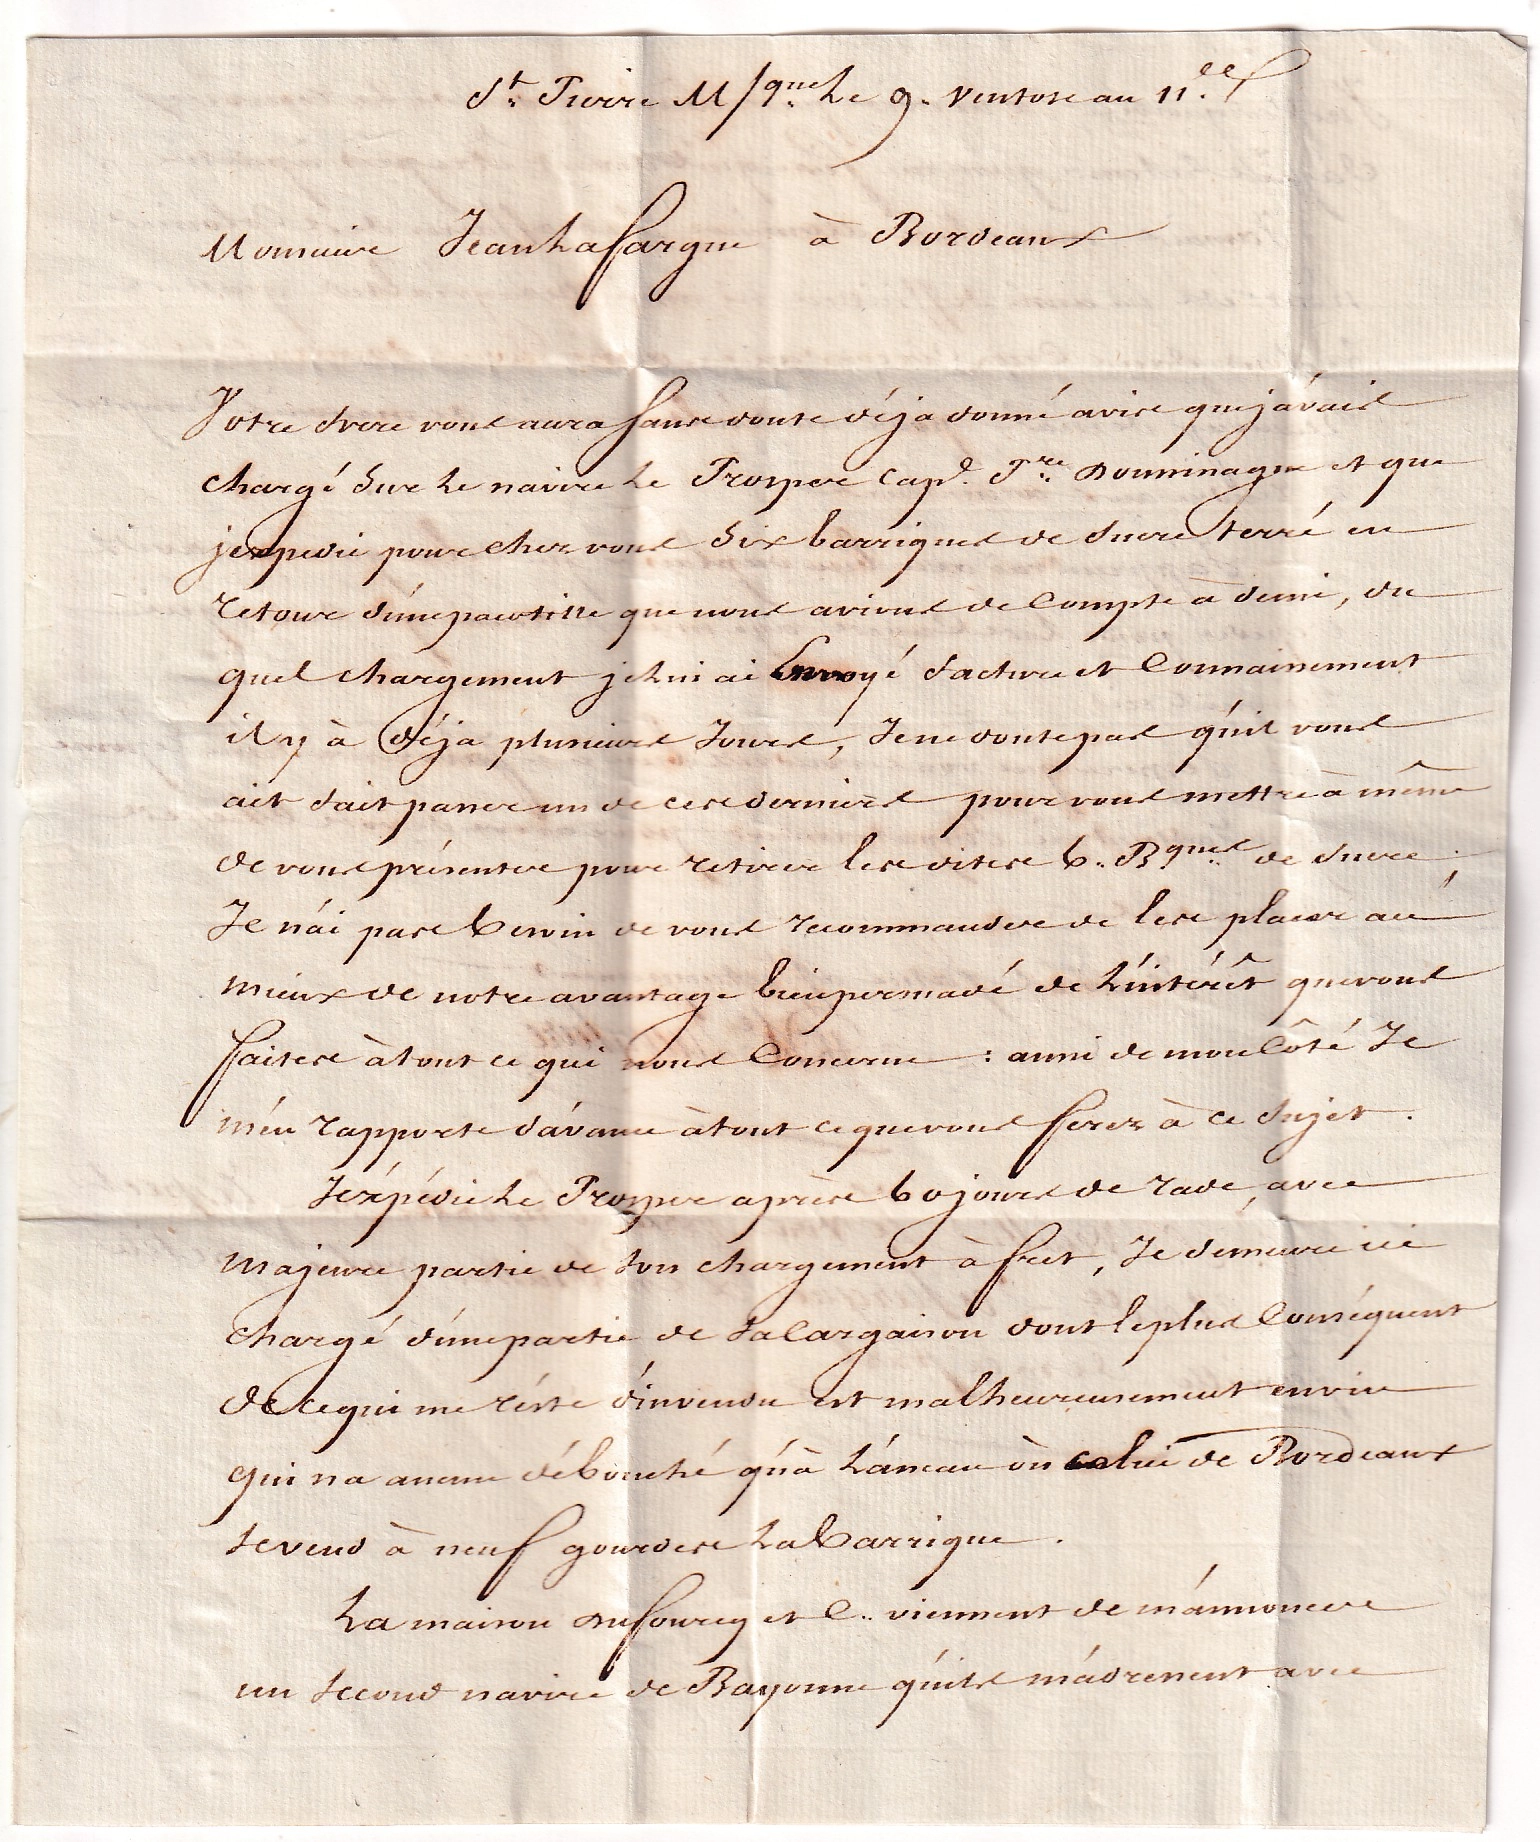 St. Pierre M/que Le 9. Ventose an 11.ee
Monsieur Jean Lafargue à Bordeaux
Votre frere vous aura sans doute déja donné avis que j'avais
chargé sur le navire le Prosper Cap.e P.re Domminague et que
j'expedie pour chez vous six barriques de sucre terré en
retour d'une pacotille que nous avions de Compte à demi, du
quel chargement je lui ai Envoyé facture et Connaissement
il y à déja plusieurs Jours, Je ne doute pas qu'il vous
ait fait passer un de ces derniers pour vous mettre à même
de vous présenter pour retirer les dites 6. Bques. de sucre.
Je n'ai pas besoin de vous recommander de les placer au
mieux de notre avantage bien persuadé de L'intérêt que vous
faites à tout ce qui nous Concerne : aussi de mon Côté Je
m'en rapporte d'avance à tout ce que vous ferez à ce sujet.
J'expédie Le Prosper après 60 jours de rade, avec
majeure partie de son chargement à fret, Je demeure ici
chargé d'une partie de sa Cargaison dont le plus Conséquent
de ce qui me réste d'invendu est malheureusement en vin
qui n'a aucun débouché qu'à L'ancan où celui de Bordeaux
se vend à neuf gourdes La barrique.
La maison Dufourcq et C.. viennent de m'annoncer
un second navire de Bayonne qu'ils m'adressent avec